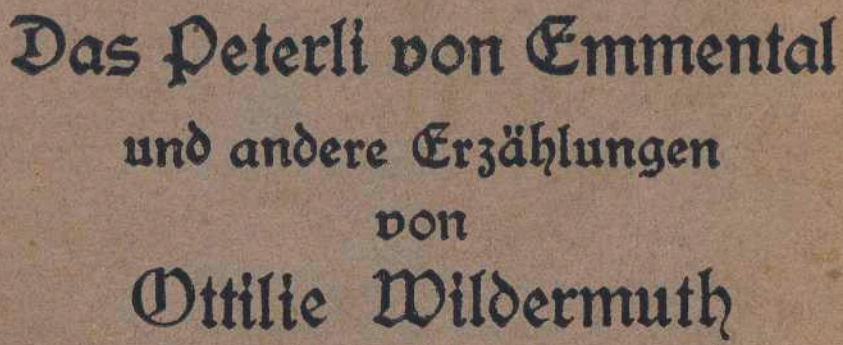 Das Peterli von Emmental
und andere Erzählungen
von
Ottilie Wildermuth